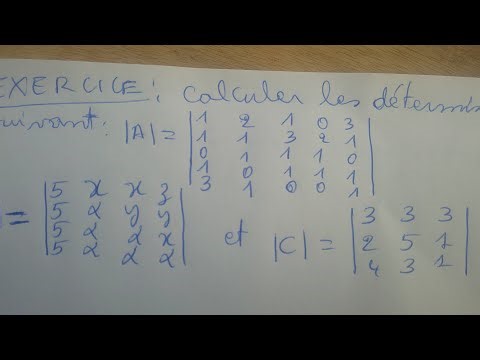 EXERCICE : calculer les détermi
uivant : |A| =
1 2 1 0 3
1 1 3 2 1
0 1 1 1 0
1 0 1 1 1
3 1 0 0 1
=
5 x x z
5 α y y
5 α α x
5 α α α
et |C| =
3 3 3
2 5 1
4 3 1